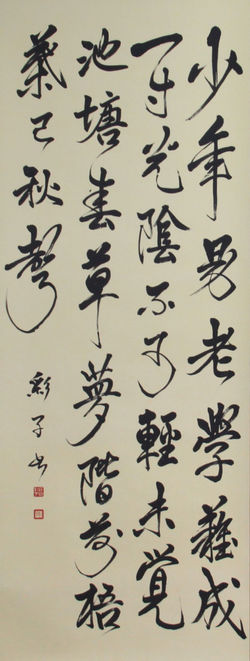 少年易老學難成
一寸光陰不可輕未覺
池塘春草夢階前梧
葉已秋聲
彩子書